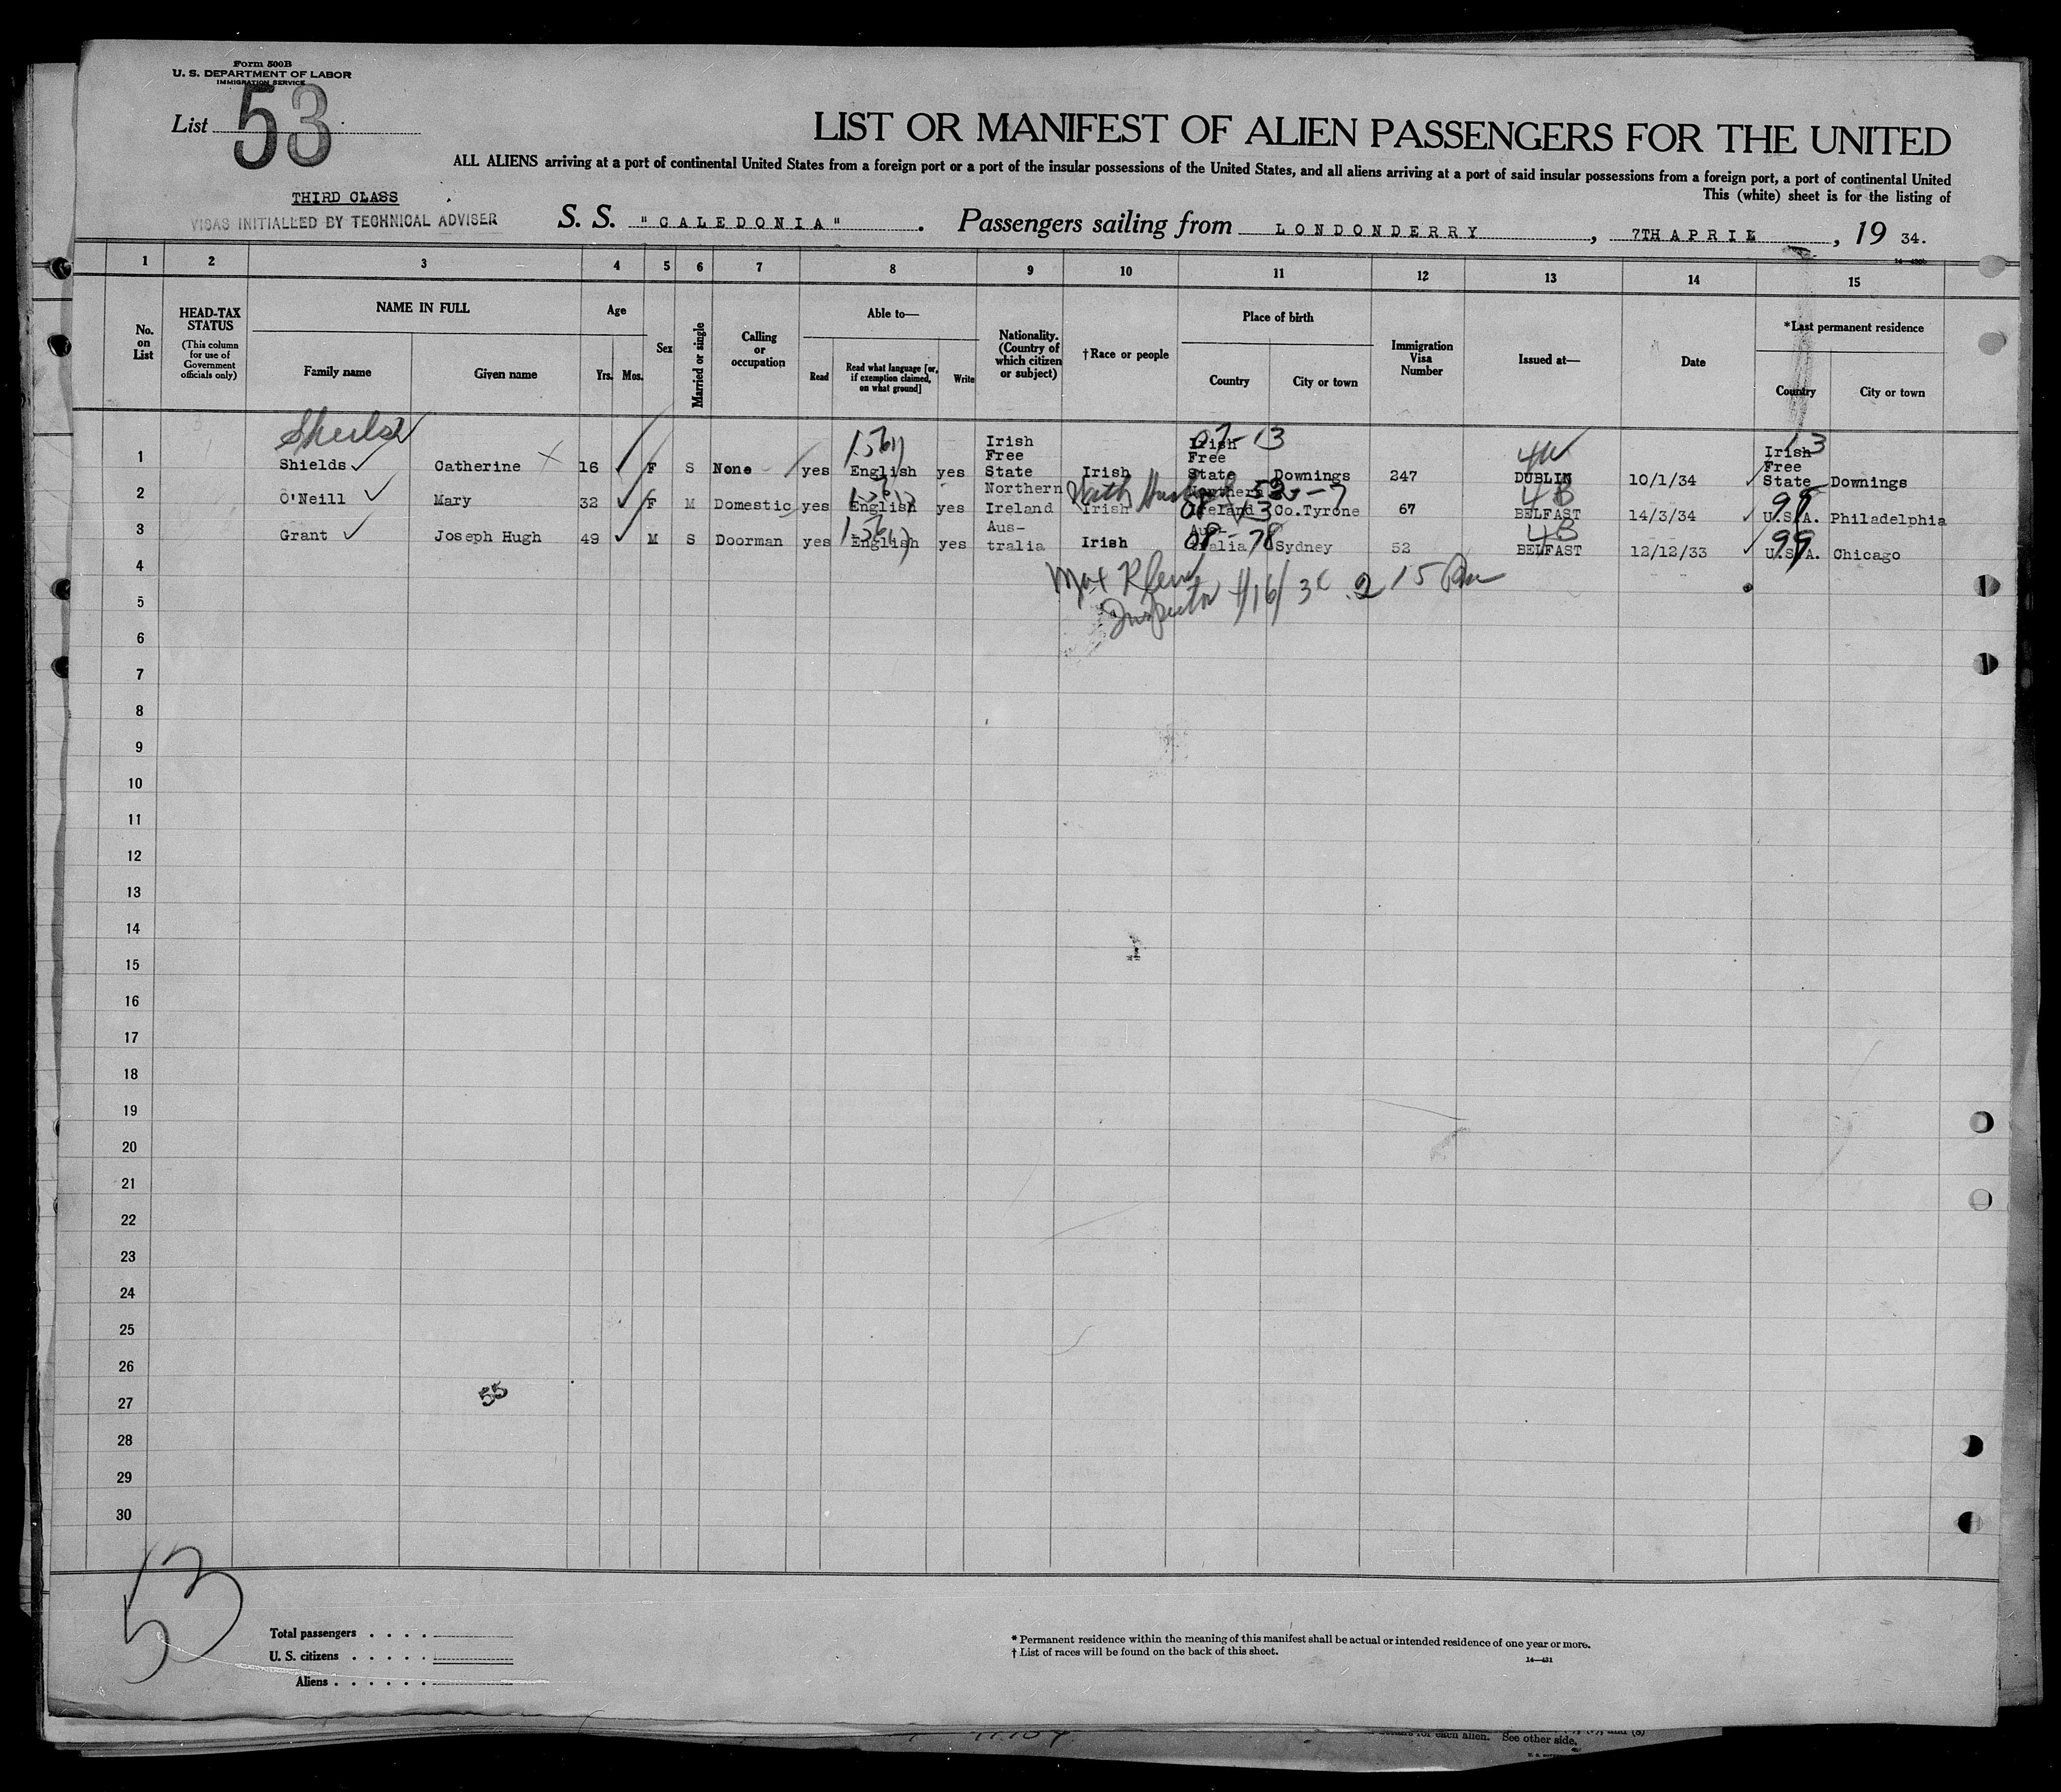 Form 500B
U. S. DEPARTMENT OF LABOR
IMMIGRATION SERVICE
List 53
LIST OR MANIFEST OF ALIEN PASSENGERS FOR THE UNITED
ALL ALIENS arriving at a port of continental United States from a foreign port or a port of the insular possessions of the United States, and all aliens arriving at a port of said insular possessions from a foreign port, a port of continental United
This (white) sheet is for the listing of
THIRD CLASS
VISAS INITIALLED BY TECHNICAL ADVISER
S. S. "CALEDONIA". Passengers sailing from LONDONDERRY, 7TH APRIL, 19 34.
1 2 3 4 5 6 7 8 9 10 11 12 13 14 15
No. on List
HEAD-TAX STATUS (This column for use of Government officials only)
NAME IN FULL
Family name
Given name
Age
Yrs. Mos.
Sex
Married or single
Calling or occupation
Able to—
Read
Read what language [or, if exemption claimed, on what ground]
Write
Nationality. (Country of which citizen or subject)
†Race or people
Place of birth
Country
City or town
Immigration Visa Number
Issued at—
Date
*Last permanent residence
Country
City or town
1 Shields Catherine 16 F S None yes English yes Irish Free State Irish Irish Free State Downings 247 DUBLIN 10/1/34 Irish Free State Downings
2 O'Neill Mary 32 F M Domestic yes English yes Northern Ireland Irish Northern Ireland Co.Tyrone 67 BELFAST 14/3/34 U.S.A. Philadelphia
3 Grant Joseph Hugh 49 M S Doorman yes English yes Aus-tralia Irish Aus-tralia Sydney 52 BELFAST 12/12/33 U.S.A. Chicago
4
Inspector
5
6
7
8
9
10
11
12
13
14
15
16
17
18
19
20
21
22
23
24
25
26
27
55
28
29
30
53
Total passengers . . . .
U. S. citizens . . . . .
Aliens . . . . . .
* Permanent residence within the meaning of this manifest shall be actual or intended residence of one year or more.
† List of races will be found on the back of this sheet.
14—431
for each alien. See other side.